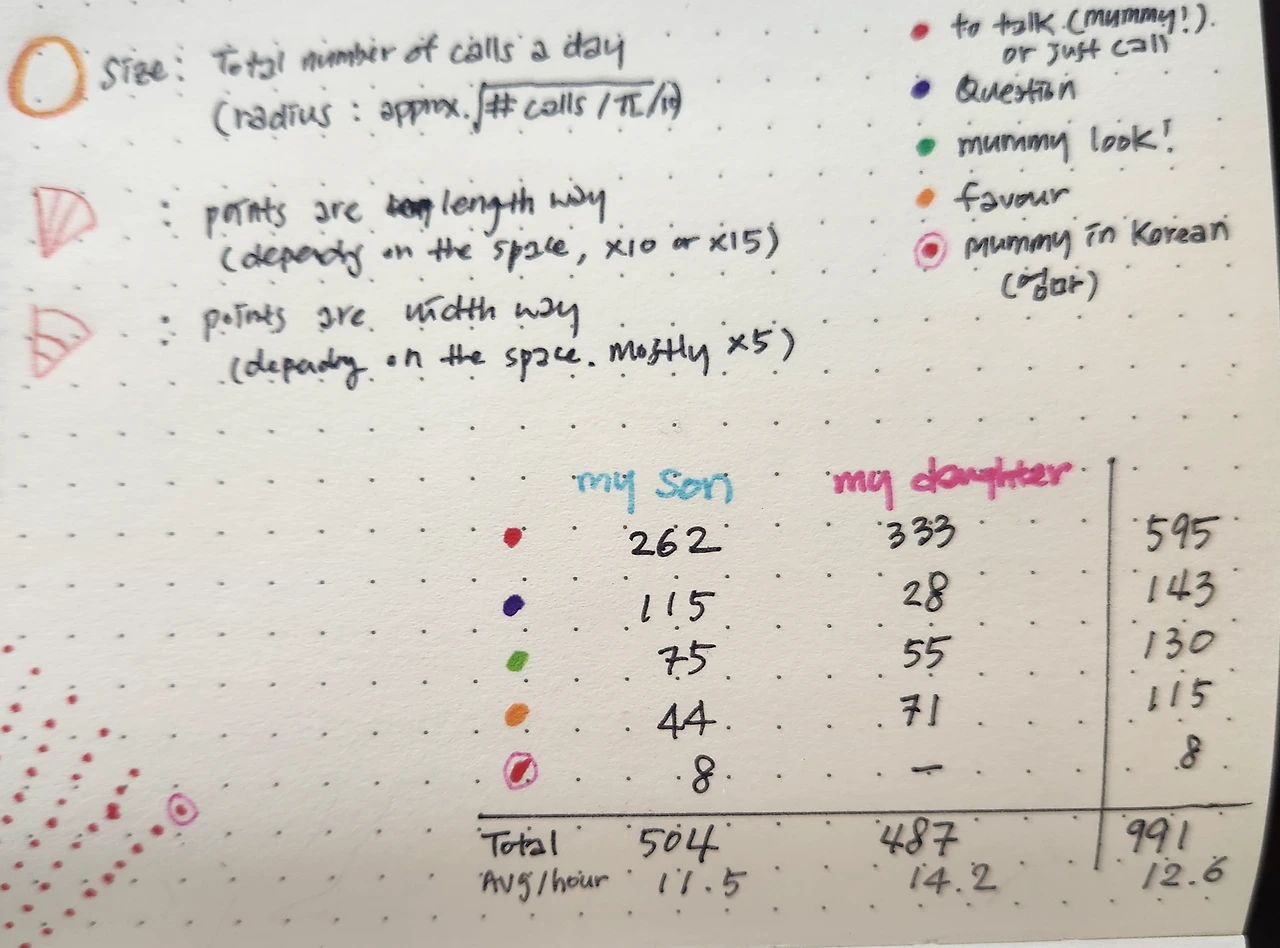 Size: Total number of calls a day
(radius: approx. √#calls/π/10)
: points are length way
(depending on the space, x10 or x15)
: points are width way
(depending on the space. mostly x5)
to talk (mummy!).
or just call
Question
mummy look!
favour
mummy in Korean
(엄마)
my son my daughter
262 333 595
115 28 143
75 55 130
44 71 115
8 – 8
Total 504 487 991
Avg/hour 11.5 14.2 12.6